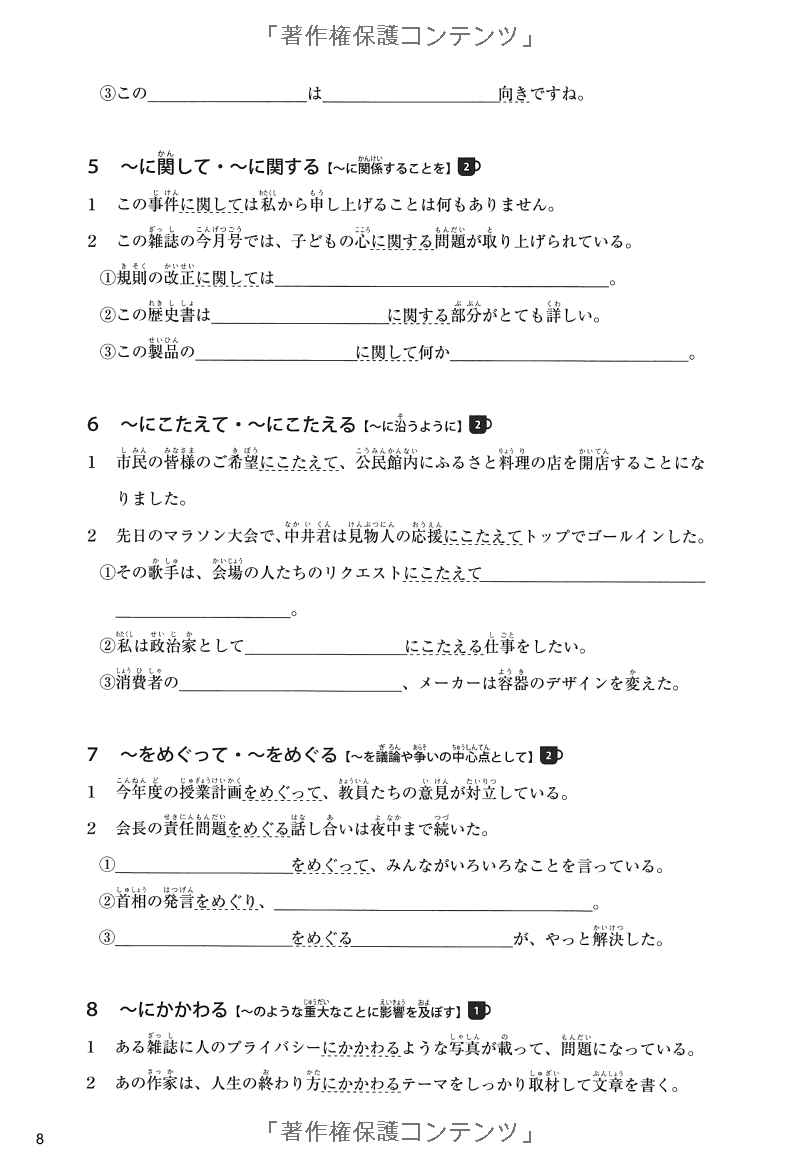 「著作権保護コンテンツ」
③この＿＿＿＿＿＿＿＿は＿＿＿＿＿＿＿＿＿向きですね。
5 ～に関して・～に関する【～に関係することを】2
1 この事件に関しては私から申し上げることは何もありません。
2 この雑誌の今月号では、子どもの心に関する問題が取り上げられている。
①規則の改正に関しては＿＿＿＿＿＿＿＿＿＿＿＿＿＿＿＿＿。
②この歴史書は＿＿＿＿＿＿＿＿＿に関する部分がとても詳しい。
③この製品の＿＿＿＿＿＿＿＿に関して何か＿＿＿＿＿＿＿＿＿＿＿＿。
6 ～にこたえて・～にこたえる【～に沿うように】2
1 市民の皆様のご希望にこたえて、公民館内にふるさと料理の店を開店することにな
りました。
2 先日のマラソン大会で、中井君は見物人の応援にこたえてトップでゴールインした。
①その歌手は、会場の人たちのリクエストにこたえて＿＿＿＿＿＿＿＿＿＿＿
＿＿＿＿＿＿＿＿＿。
②私は政治家として＿＿＿＿＿＿＿＿にこたえる仕事をしたい。
③消費者の＿＿＿＿＿＿＿＿＿＿＿、メーカーは容器のデザインを変えた。
7 ～をめぐって・～をめぐる【～を議論や争いの中心点として】2
1 今年度の授業計画をめぐって、教員たちの意見が対立している。
2 会長の責任問題をめぐる話し合いは夜中まで続いた。
①＿＿＿＿＿＿＿＿＿をめぐって、みんながいろいろなことを言っている。
②首相の発言をめぐり、＿＿＿＿＿＿＿＿＿＿＿＿＿＿＿＿。
③＿＿＿＿＿＿＿＿＿をめぐる＿＿＿＿＿＿＿＿が、やっと解決した。
8 ～にかかわる【～のような重大なことに影響を及ぼす】1
1 ある雑誌に人のプライバシーにかかわるような写真が載って、問題になっている。
2 あの作家は、人生の終わり方にかかわるテーマをしっかり取材して文章を書く。
8
「著作権保護コンテンツ」